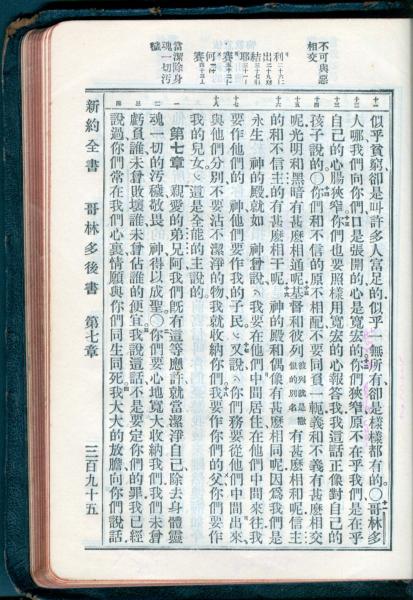 不可與惡
相交
利 二十六〇十二
出 二十九〇四十五
結 三十七〇二十七
耶 三十一〇
賽 五十二〇十一
何
賽 四十三〇六
當潔除身
魂一切汚
穢
似乎貧窮、卻是叫許多人富足的、似乎一無所有、卻是樣樣都有的。〇哥林多
人哪、我們向你們、口是張開的、心是寬宏的。你們狹窄、原不在乎我們、是在乎
自己的心腸狹窄。你們也要照樣用寬宏的心報答我、我這話正像對自己的
孩子說的。〇你們和不信的原不相配、不要同負一軛、義和不義有甚麼相交
呢、光明和黑暗有甚麼相通呢。基督和彼列彼列就是撒但的別名有甚麼相和呢、信主
的和不信主的有甚麼相干呢。神的殿和偶像有甚麼相同呢、因爲我們是
永生 神的殿、就如 神曾說、我要在他們中間居住、在他們中間來往、我
要作他們的 神、他們要作我的子民。又說、你們務要從他們中間出來、
與他們分別、不要沾不潔淨的物、我就收納你們。我要作你們的父、你們要作
我的兒女、這是全能的主說的。
第七章 親愛的弟兄阿、我們旣有這等應許、就當潔淨自己、除去身體靈
魂一切的汚穢、敬畏 神、得以成聖。〇你們要心地寬大收納我們、我們未曾
虧負誰、未曾敗壞誰、未曾佔誰的便宜。我說這話、不是要定你們的罪、我已經
說過、你們常在我們心裏、情願與你們同生同死。我大大的放膽向你們說話、
新約全書 哥林多後書 第七章 三百九十五